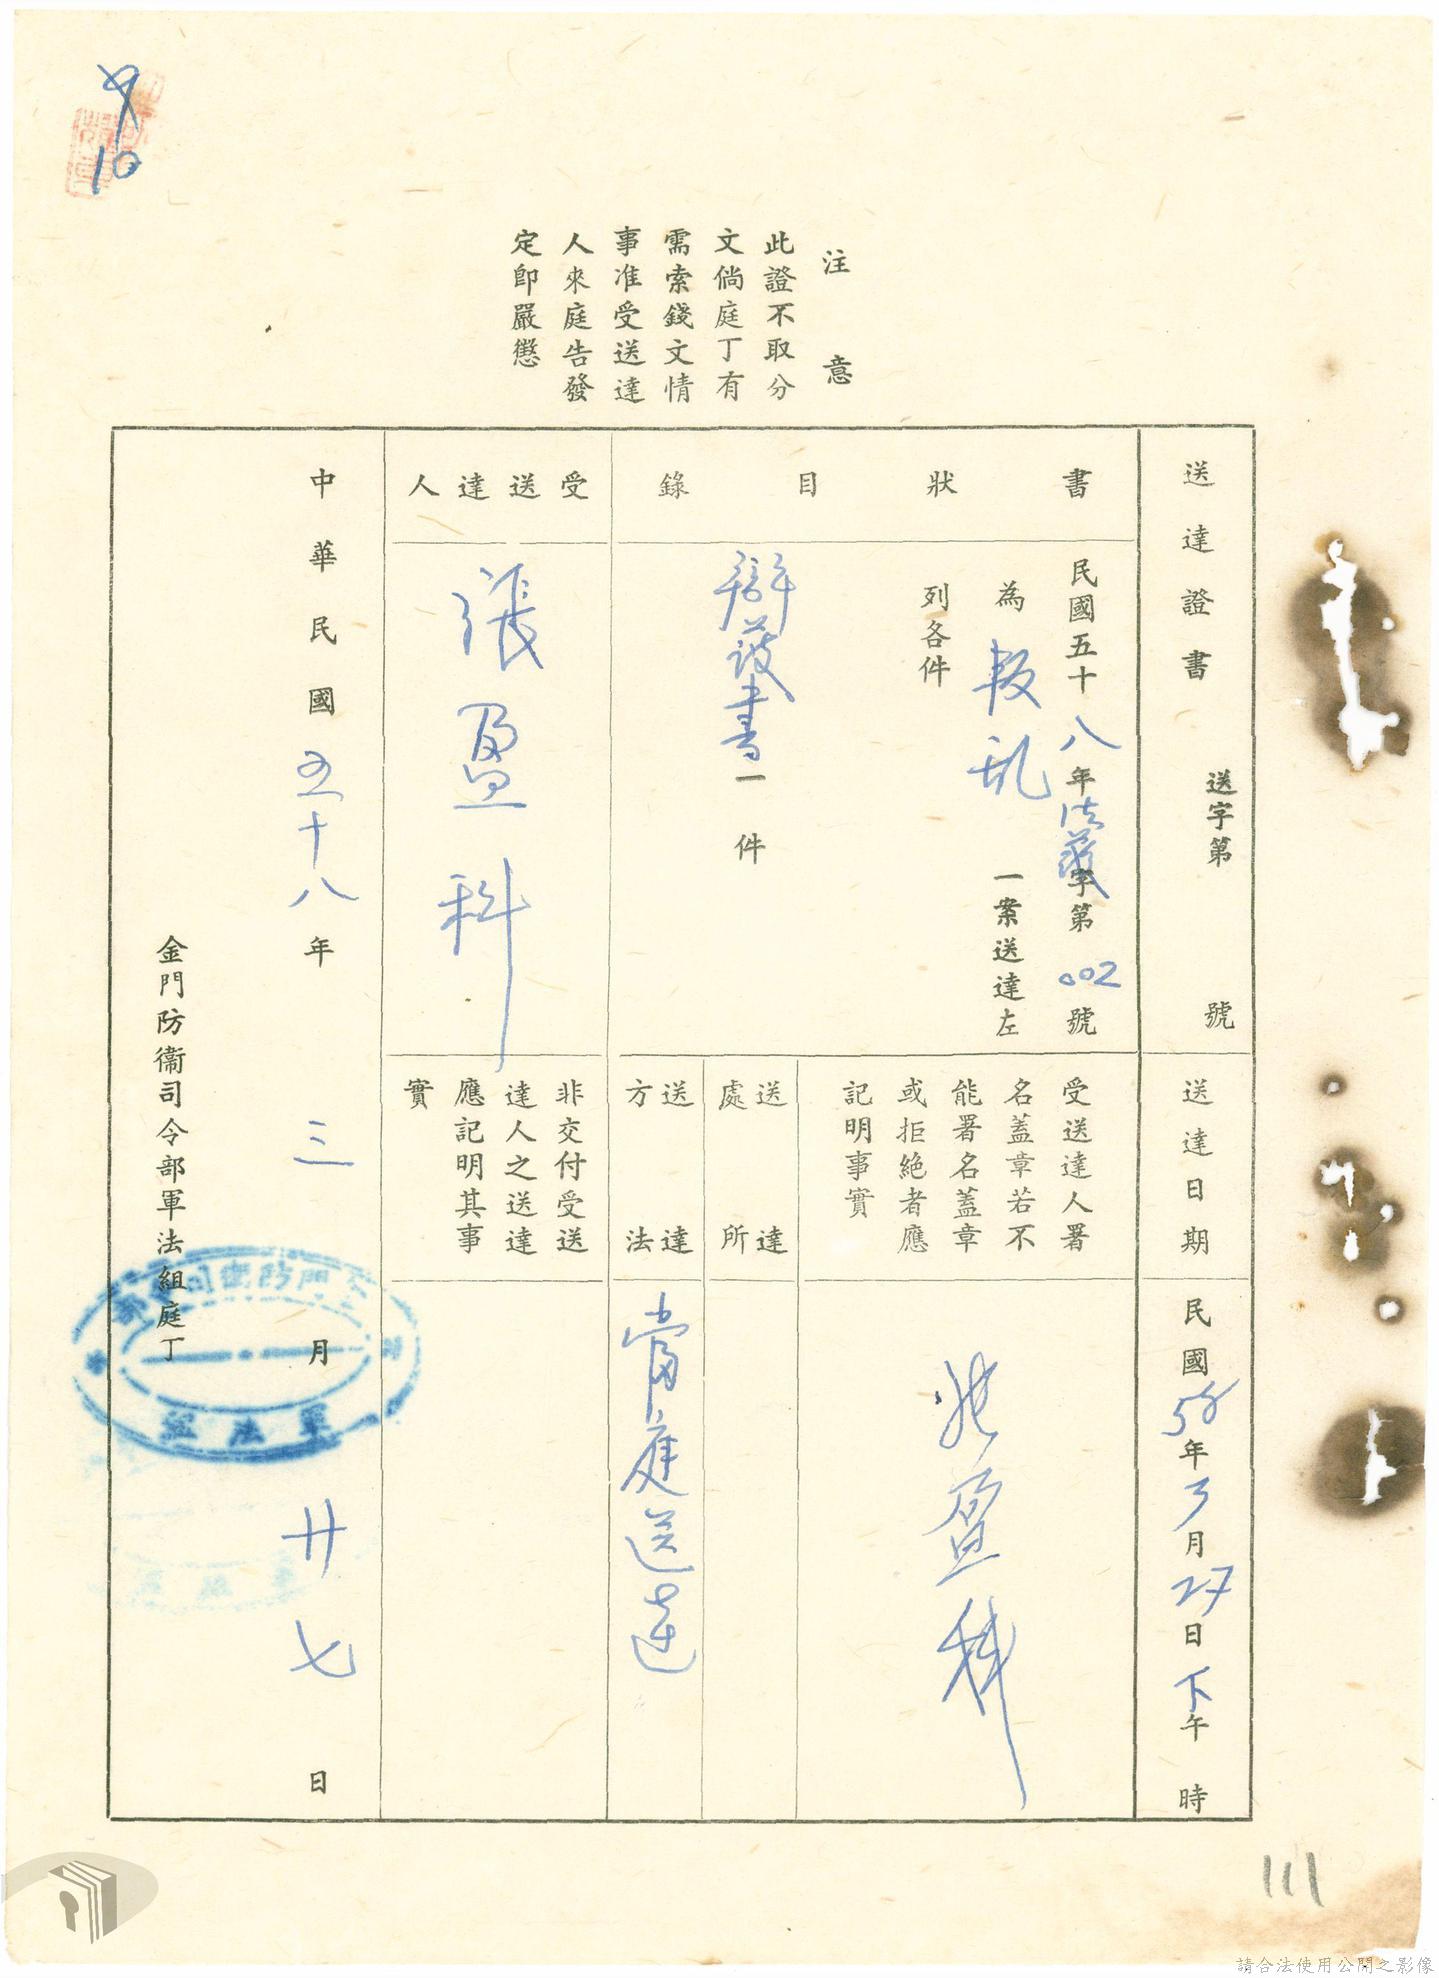 注意
此證不取分
文倘庭丁有
需索錢文情
事准受送達
人來庭告發
定即嚴懲
送達證書
送字第 號
書狀目錄
民國五十八年法 字第002號
為叛乱一案送達左
列各件
書一件
受送達人
張盈科
送達日期
民國58年3月27日下午 時
受送達人署
名蓋章若不
能署名蓋章
或拒絕者應
記明事實
張盈科
送達
處所
送達
方法
當庭送達
非交付受送
達人之送達
應記明其事
實
中華民國五十八年三月廿七日
金門防衞司令部軍法組庭丁
金門防衛司令部
軍法組
10
111
請合法使用公開之影像